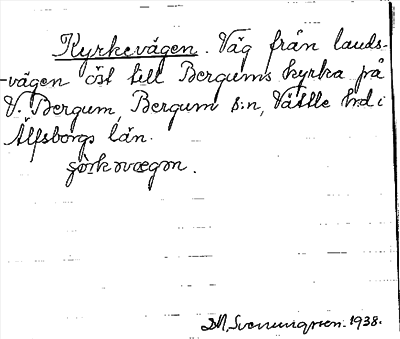 Kyrkevägen. Väg från lands-
-vägen öst till Bergums kyrka på
V. Bergum, Bergum s:n, Vättle hd i
Älfsborgs län.
1938.